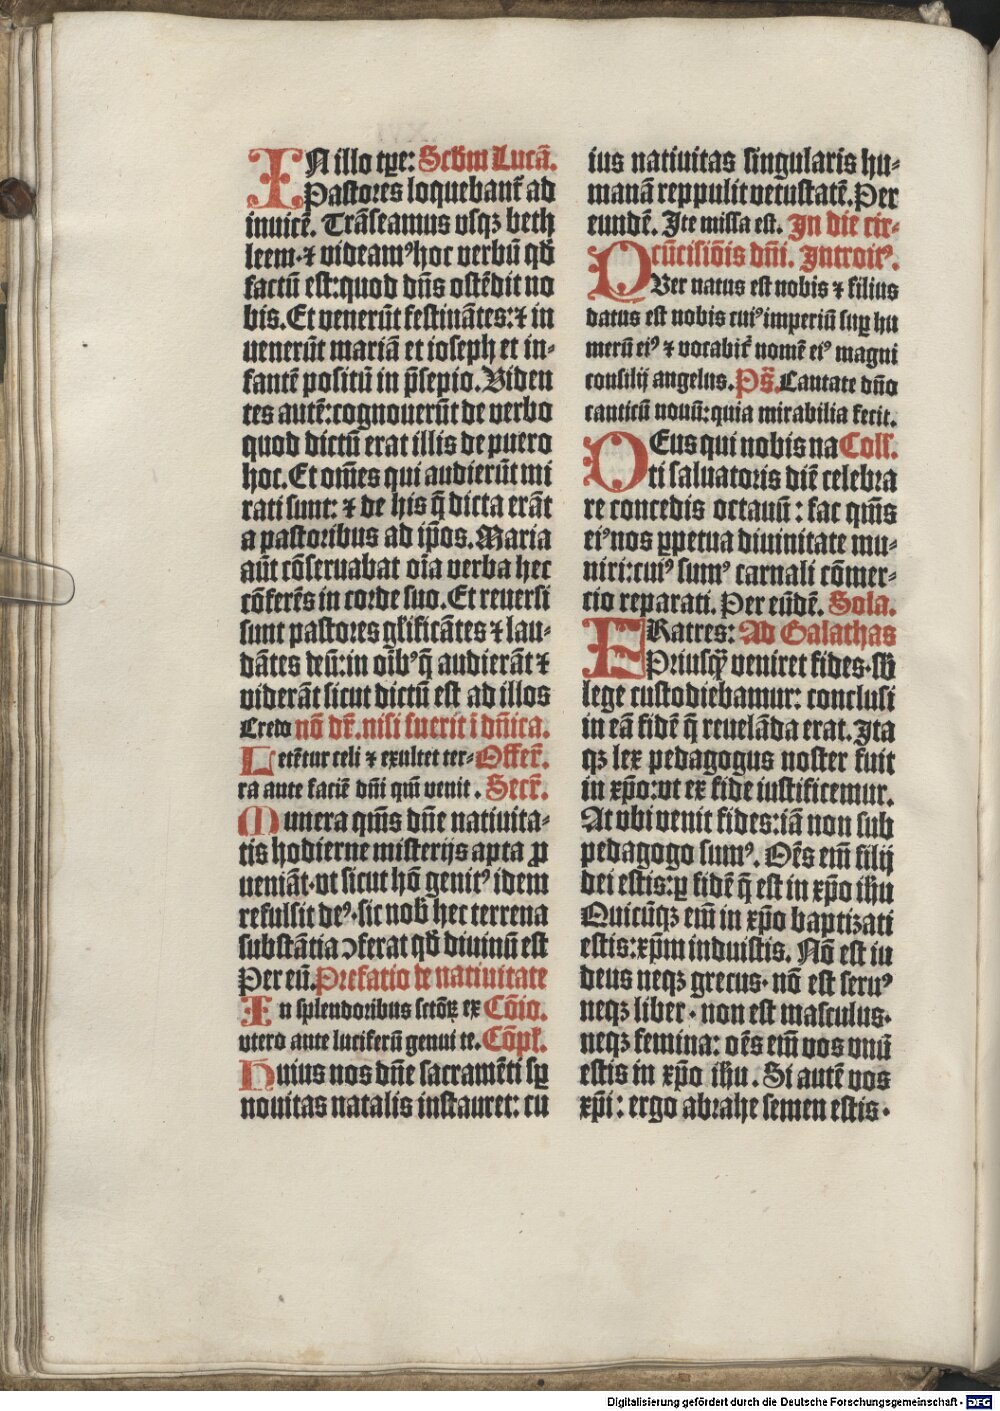 IN illo tꝑe: Scḋm Lucā.
Pastores loquebant̉ ad
inuicē. Trāseamus vsqꝫ beth
leem·⁊ videamꝰ hoc verbū qḋ
factū est:quod dn̄s ostēdit no
bis. Et venerūt festinātes:⁊ in
uenerūt mariā et ioseph et in-
fantē positū in p̄sepio. Viden
tes autē:cognouerūt de verbo
quod dictū erat illis de puero
hoc. Et om̄es qui audierūt mi
rati sunt: ⁊ de his q̄ dicta erāt
a pastoribus ad ip̄os. Maria
aūt cōseruabat oīa verba hec
cōferēs in corde suo. Et reuersi
sunt pastores gl̉ificātes ⁊ lau-
dātes deū:in oībꝰ q̄ audierāt ⁊
viderāt sicut dictū est ad illos
Credo nō dr̄. nisi fuerit ī dn̄ica.
Letētur celi ⁊ exultet ter- Offer̄.
ra ante faciē dn̄i qm̄ venit. Secr̄.
Munera qm̄s dn̄e natiuita-
tis hodierne misterijs apta ꝓ
ueniāt·vt sicut hō genitꝰ idem
refulsit deꝰ·sic nob̄ hec terrena
substātia ↄferat qḋ diuinū est
Per eū. Prefatio de natiuitate
In splendoribus sctōꝝ ex Cōio.
vtero ante luciferū genui te. Cōpl̄.
Huius nos dn̄e sacramēti sꝑ
nouitas natalis instauret: cu
ius natiuitas singularis hu-
manā reppulit vetustatē. Per
eundē. Ite missa est. In die cir-
cūcisiōis dn̄i. Introitꝰ.
PVer natus est nobis ⁊ filius
datus est nobis cuiꝰ imperiū suꝑ hu
merū eiꝰ ⁊ vocabit̉ nomē eiꝰ magni
consilij angelus. Ps̄. Cantate dn̄o
canticū nouū:quia mirabilia fecit.
DEus qui nobis na Coll.
ti saluatoris diē celebra
re concedis octauū: fac qm̄s
eiꝰ nos ꝑpetua diuinitate mu-
niri:cuiꝰ sumꝰ carnali cōmer-
cio reparati. Per eūdē. Sola.
FRatres: Ad Galathas
Priusq̄ȝ veniret fides·sb̄
lege custodiebamur: conclusi
in eā fidē q̄ reuelāda erat. Ita
qꝫ lex pedagogus noster fuit
in xp̄o:vt ex fide iustificemur.
At vbi venit fides:iā non sub
pedagogo sumꝰ. Oēs em̄ filij
dei estis:ꝑ fidē q̄ est in xp̄o ih̄u
Quicūqꝫ em̄ in xp̄o baptizati
estis:xp̄m induistis. Nō est iu
deus neqꝫ grecus·nō est seruꝰ
neqꝫ liber·non est masculus·
neqꝫ femina: oēs em̄ vos vnū
estis in xp̄o ih̄u. Si autē vos
xp̄i: ergo abrahe semen estis·
Digitalisierung gefördert durch die Deutsche Forschungsgemeinschaft - DFG